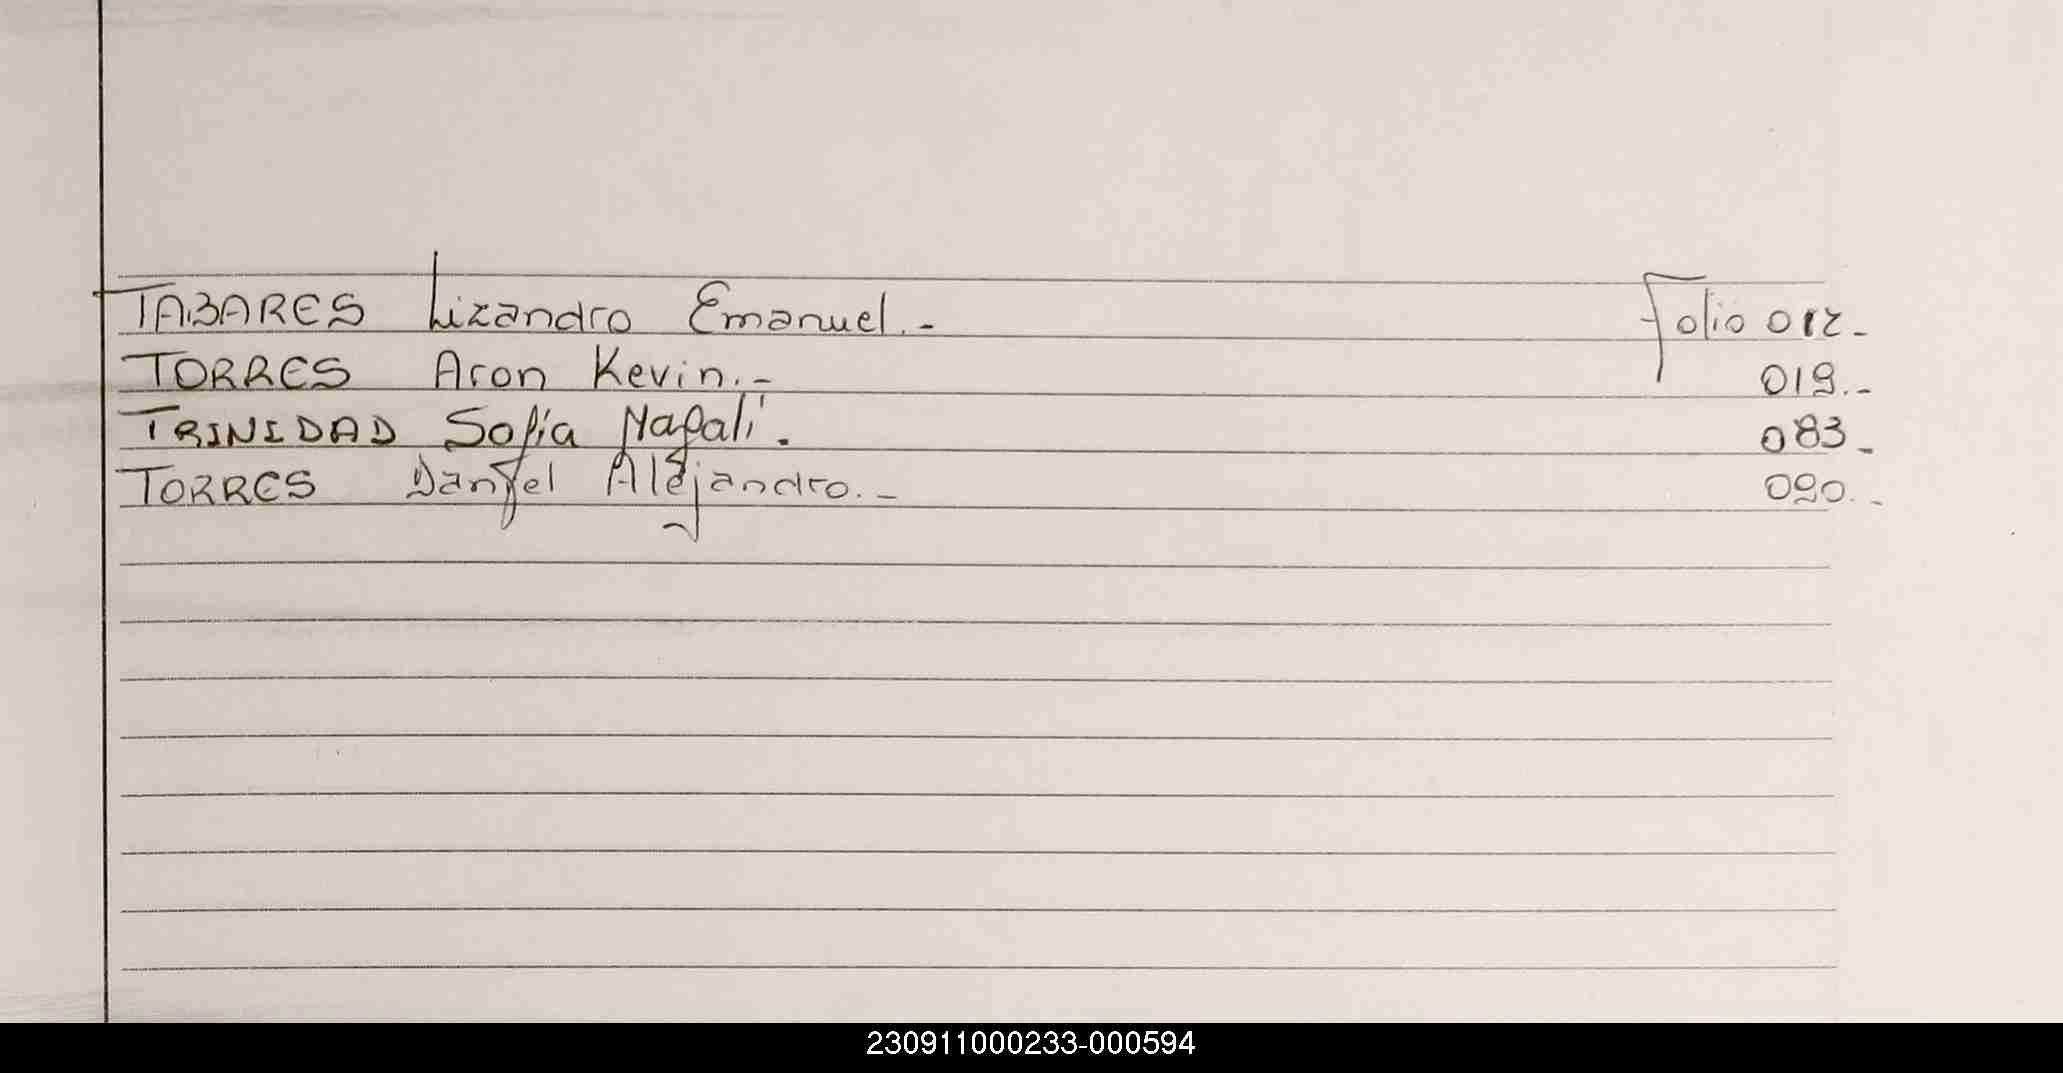 TABARES Lizandro Emanuel.- Folio 012-
TORRES Aron Kevin.- 019.-
TRINIDAD Sofia Magalí. 083-
TORRES Daniel Alejandro.- 090.-
230911000233-000594